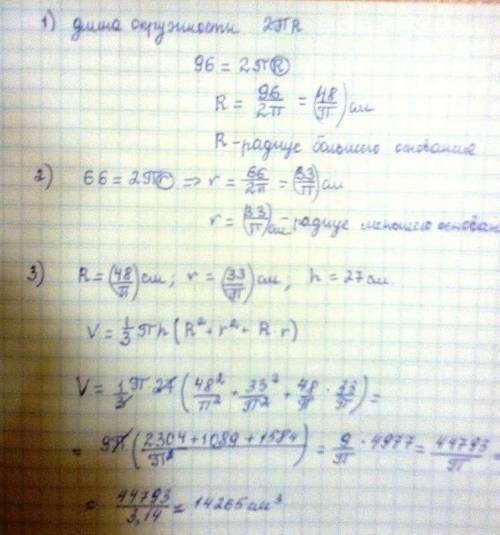 1) длина окружности 2πR
96 = 2πR
R = 96/2π = (48/π) см
R - радиус большего основания
2) 66 = 2πr => r = 66/2π = (33/π) см
r = (33/π) см - радиус меньшего основан
3) R = (48/π) см; r = (33/π) см, h = 27 см
V = 1/3 πh (R² + r² + R·r)
V = 1/3 π 27 (48²/π² + 33²/π² + 48/π · 33/π) =
= 9π (2304 + 1089 + 1584/π²) = 9/π · 4977 = 44793/π =
= 44793/3,14 = 14265 см³